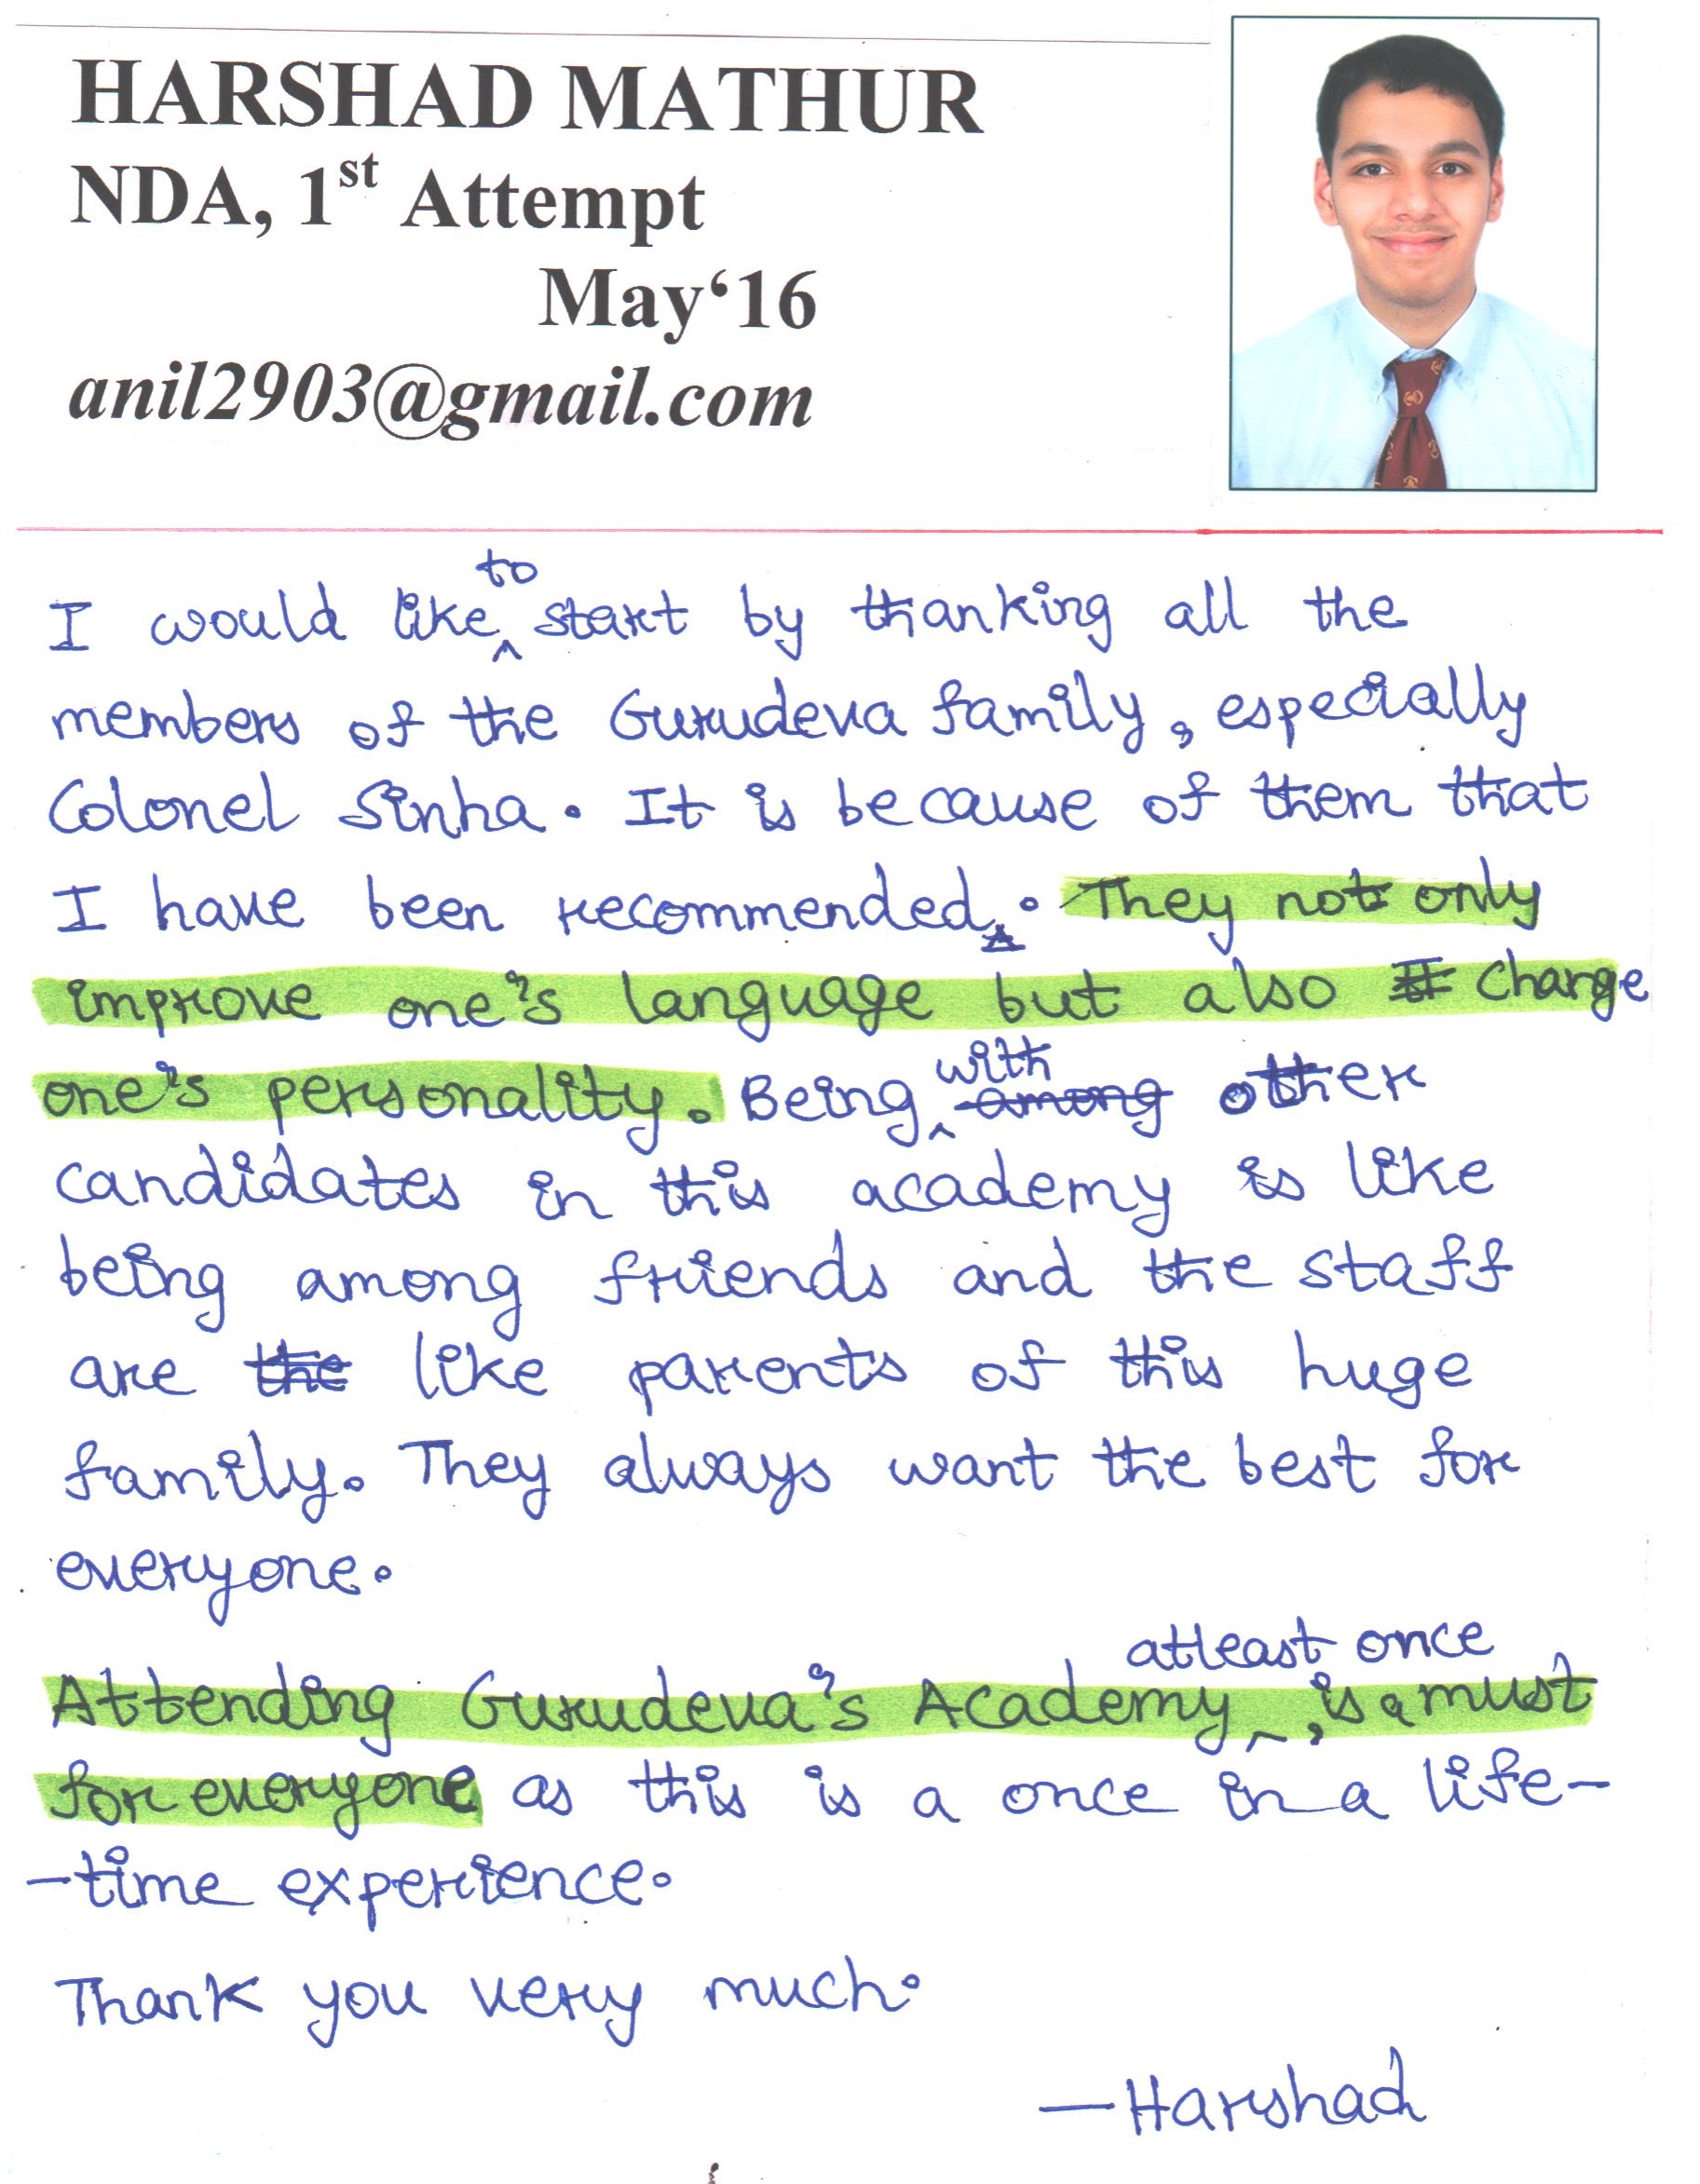 HARSHAD MATHUR
NDA, 1st Attempt
May‘16
anil2903@gmail.com
I would like to start by thanking all the
members of the Gurudeva family, especially
Colonel Sinha. It is because of them that
I have been recommended. They not only
improve one's language but also change
one's personality. Being with among other
candidates in this academy is like
being among friends and the staff
are the like parents of this huge
family. They always want the best for
everyone.
Attending Gurudeva's Academy atleast once, is a must
for everyone as this is a once in a life-
-time experience.
Thank you very much.
—Harshad